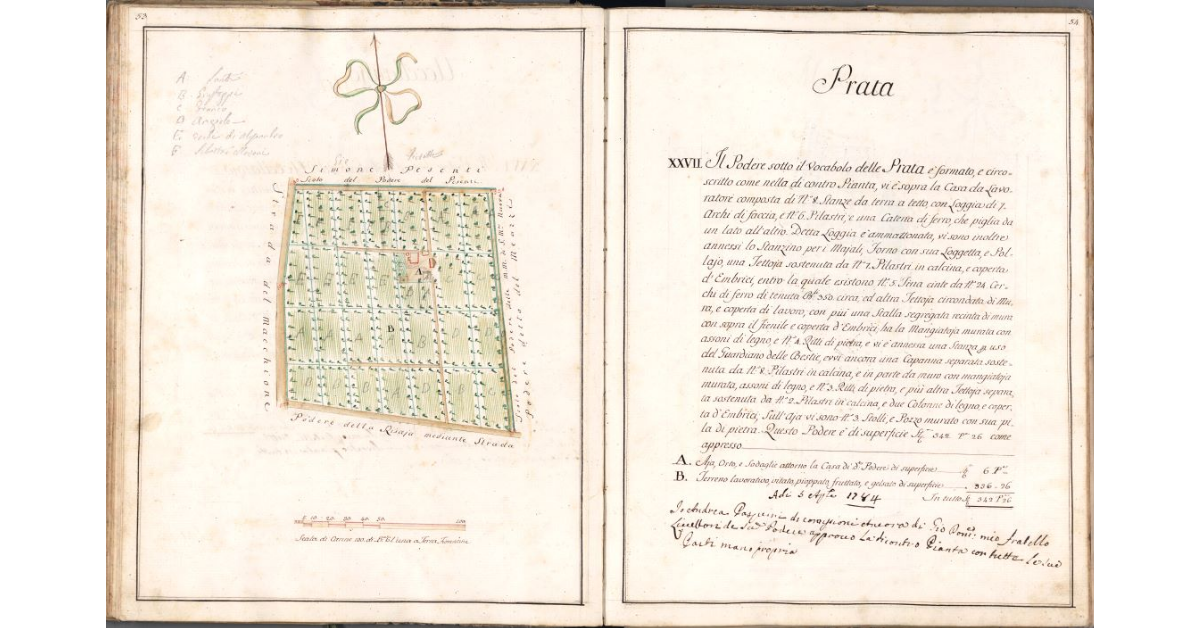 53
A
B Giuseppe
C
D Angelo
E
F
Simone Pesenti
Scolo del Podere del Pesenti
Strada del Macchione
A
B
Podere della Risaja mediante Strada
10 20 30 40 50 100
Scala di Canne 100 di
54
Prata
XXVII. Il Podere sotto il Vocabolo delle Prata e' formato, e circo-
scritto come nella di contro Pianta, vi e' sopra la Casa da Lavo-
ratore composta di N.º 8. Stanze da terra a tetto, con Loggia di 7.
Archi di faccia, e N.º 6. Pilastri, e una Catena di ferro, che piglia da
un lato all'altro. Detta Loggia e' ammattonata, vi sono inoltre
annessi lo Stanzino per i Majali, Forno con sua Loggetta, e Pol-
lajo, una Tettoja sostenuta da N.º 2. Pilastri in calcina, e coperta
d'Embrici, entro la quale esistono N.º 5. Tina cinte da N.º 24 Cer-
chi di ferro di tenuta B.li 350. circa, ed altra Tettoja circondata di Mu-
ra, e coperta di lavoro, con più una Stalla segregata recinta di mura
con sopra il fienile e coperta d'Embrici, ha la Mangiatoja murata con
assoni di legno, e N.º 4. Ritti di pietra, e vi e' annessa una Stanza p uso
del Guardiano delle Bestie, evvi ancora una Capanna separata soste-
nuta da N.º 8. Pilastri in calcina, e in parte da muro con mangiatoja
murata, assoni di legno, e N.º 3. Ritti di pietra, e più altra Tettoja separa
ta sostenuta da N.º 2. Pilastri in calcina, e due Colonne di legno, e coper-
ta d'Embrici, Sull'Aja vi sono N.º 3. Stolli, e Pozzo murato con sua pi-
la di pietra. Questo Podere e' di superficie 342 26 come
appresso
A. Aja, Orto, e Sodaglie attorno la Casa di d.º Podere di superficie 6
B. Terreno lavorativo, vitato, pioppato, fruttato, e gelsato di superficie 336. 26
Adi 5 1784 In tutto 342 26
Io Andrea di comissione di Gio mio fratello
Livellari de Podere approvo la di contro Pianta con tutte le sue
Parti mano propria